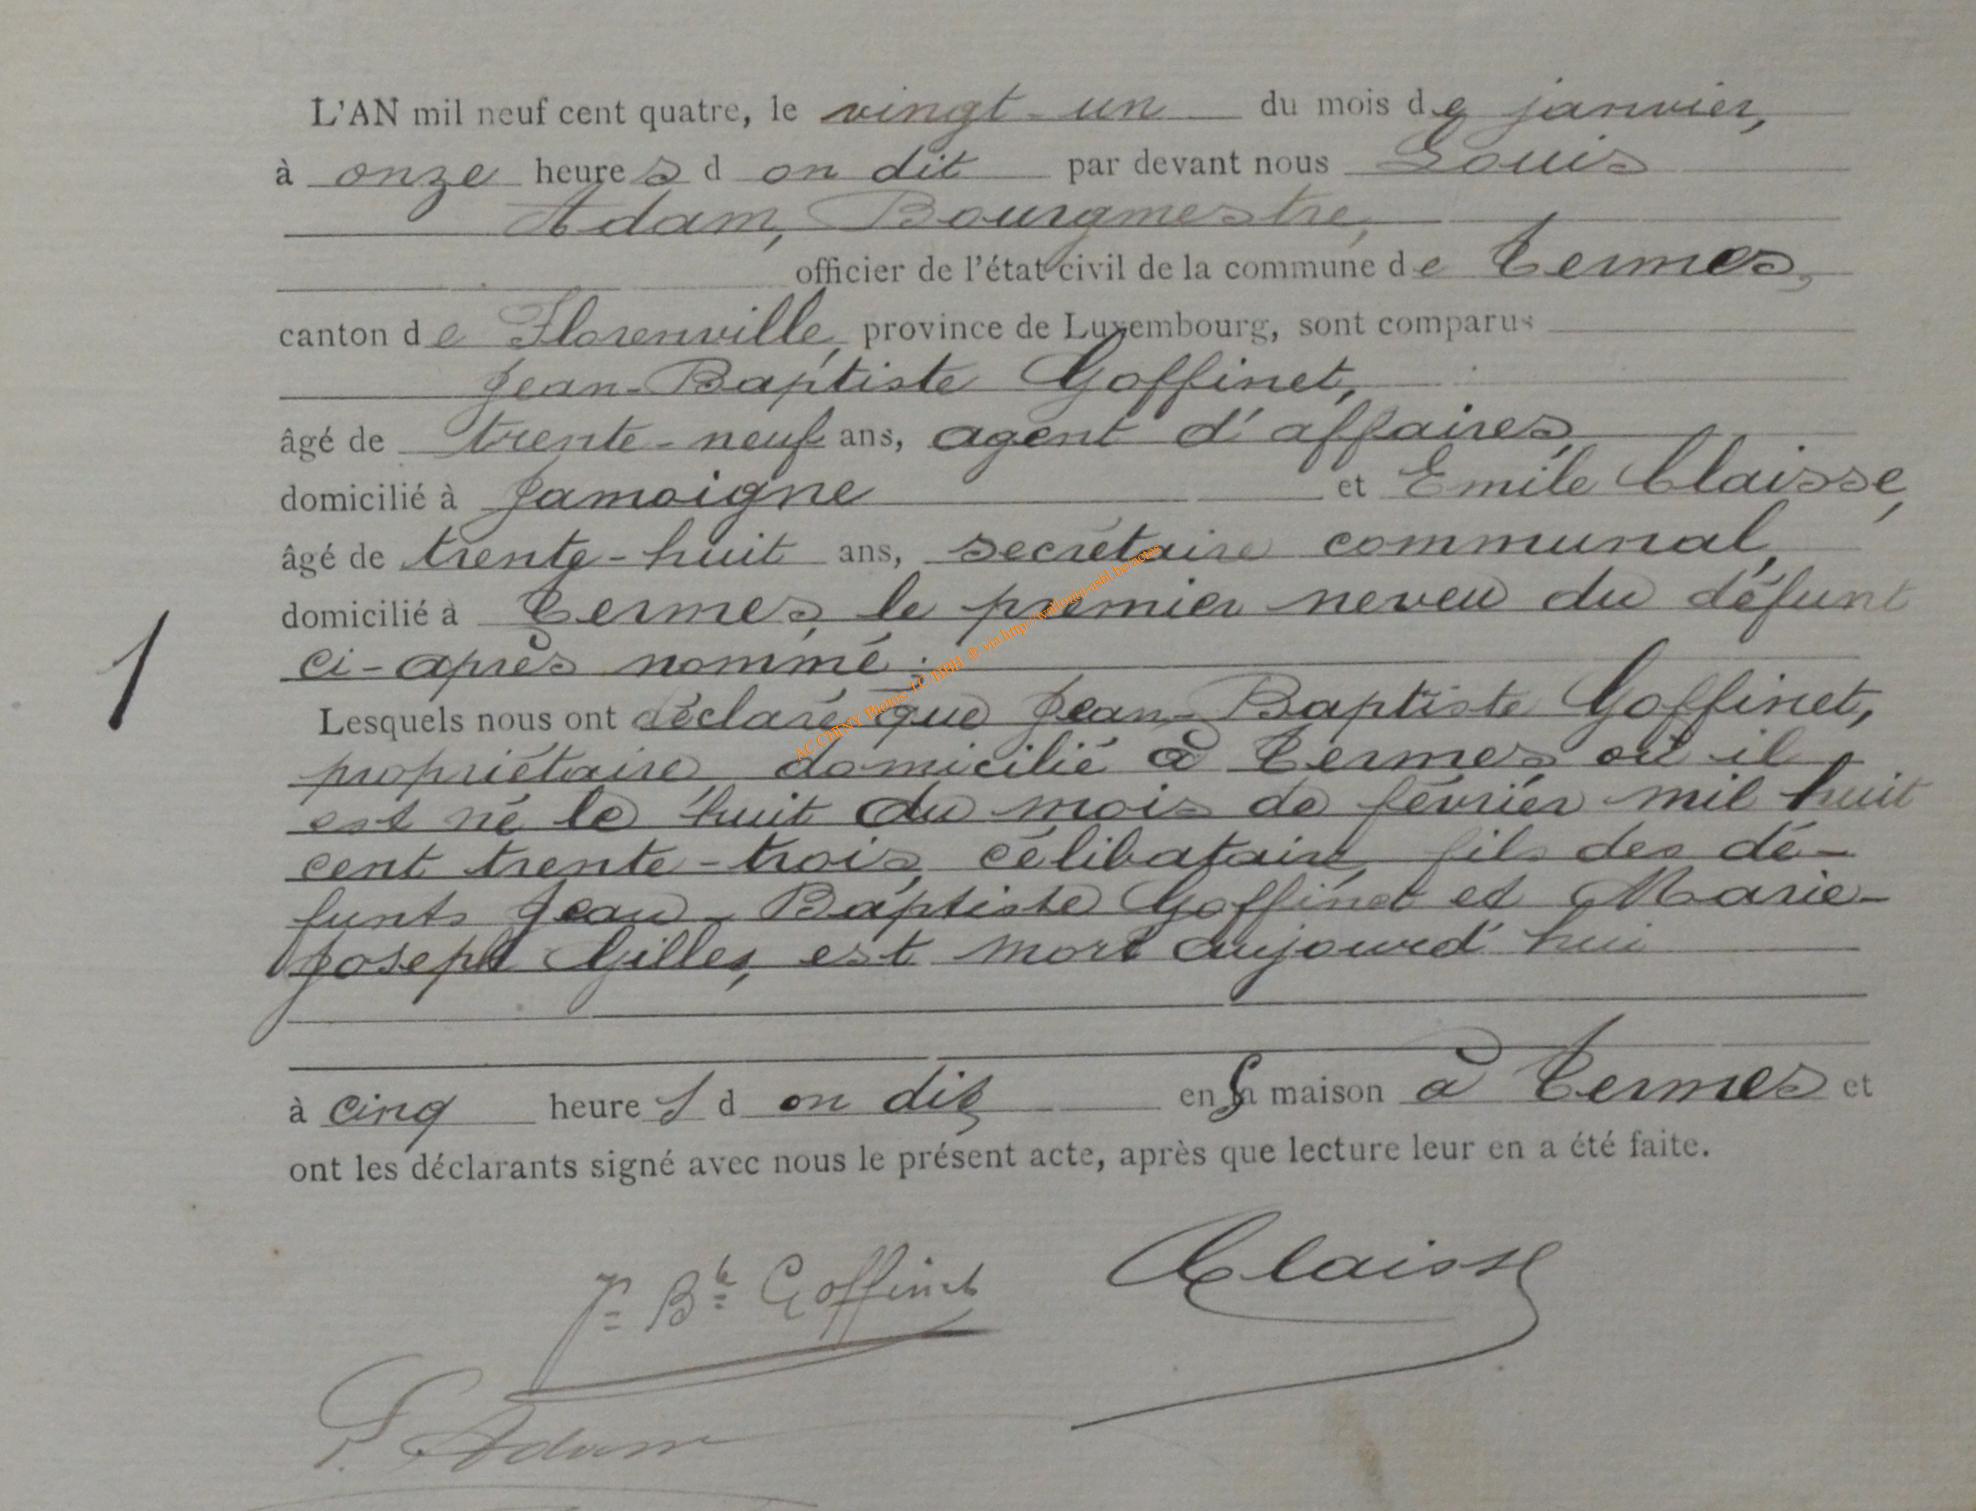 L'AN mil neuf cent quatre, le vingt-un du mois de janvier,
à onze heures d on dit par devant nous Louis
Adam, Bourgmestre,
officier de l'état civil de la commune de Termes,
canton de Florenville, province de Luxembourg, sont comparus
Jean-Baptiste Goffinet,
âgé de trente-neuf ans, agent d'affaires,
domicilié à Jamoigne et Emile Claisse,
âgé de trente-huit ans, secrétaire communal,
domicilié à Termes, le premier neveu du défunt
ci-après nommé :
1
Lesquels nous ont déclaré que Jean-Baptiste Goffinet,
propriétaire, domicilié à Termes, où il
est né le huit du mois de février mil huit
cent trente-trois, célibataire, fils des dé-
funts Jean-Baptiste Goffinet et Marie-
Joseph Gilles, est mort aujourd'hui
à cinq heures d on dit en sa maison à Termes et
ont les déclarants signé avec nous le présent acte, après que lecture leur en a été faite.
Jn Bte Goffinet Claisse
L. Adam